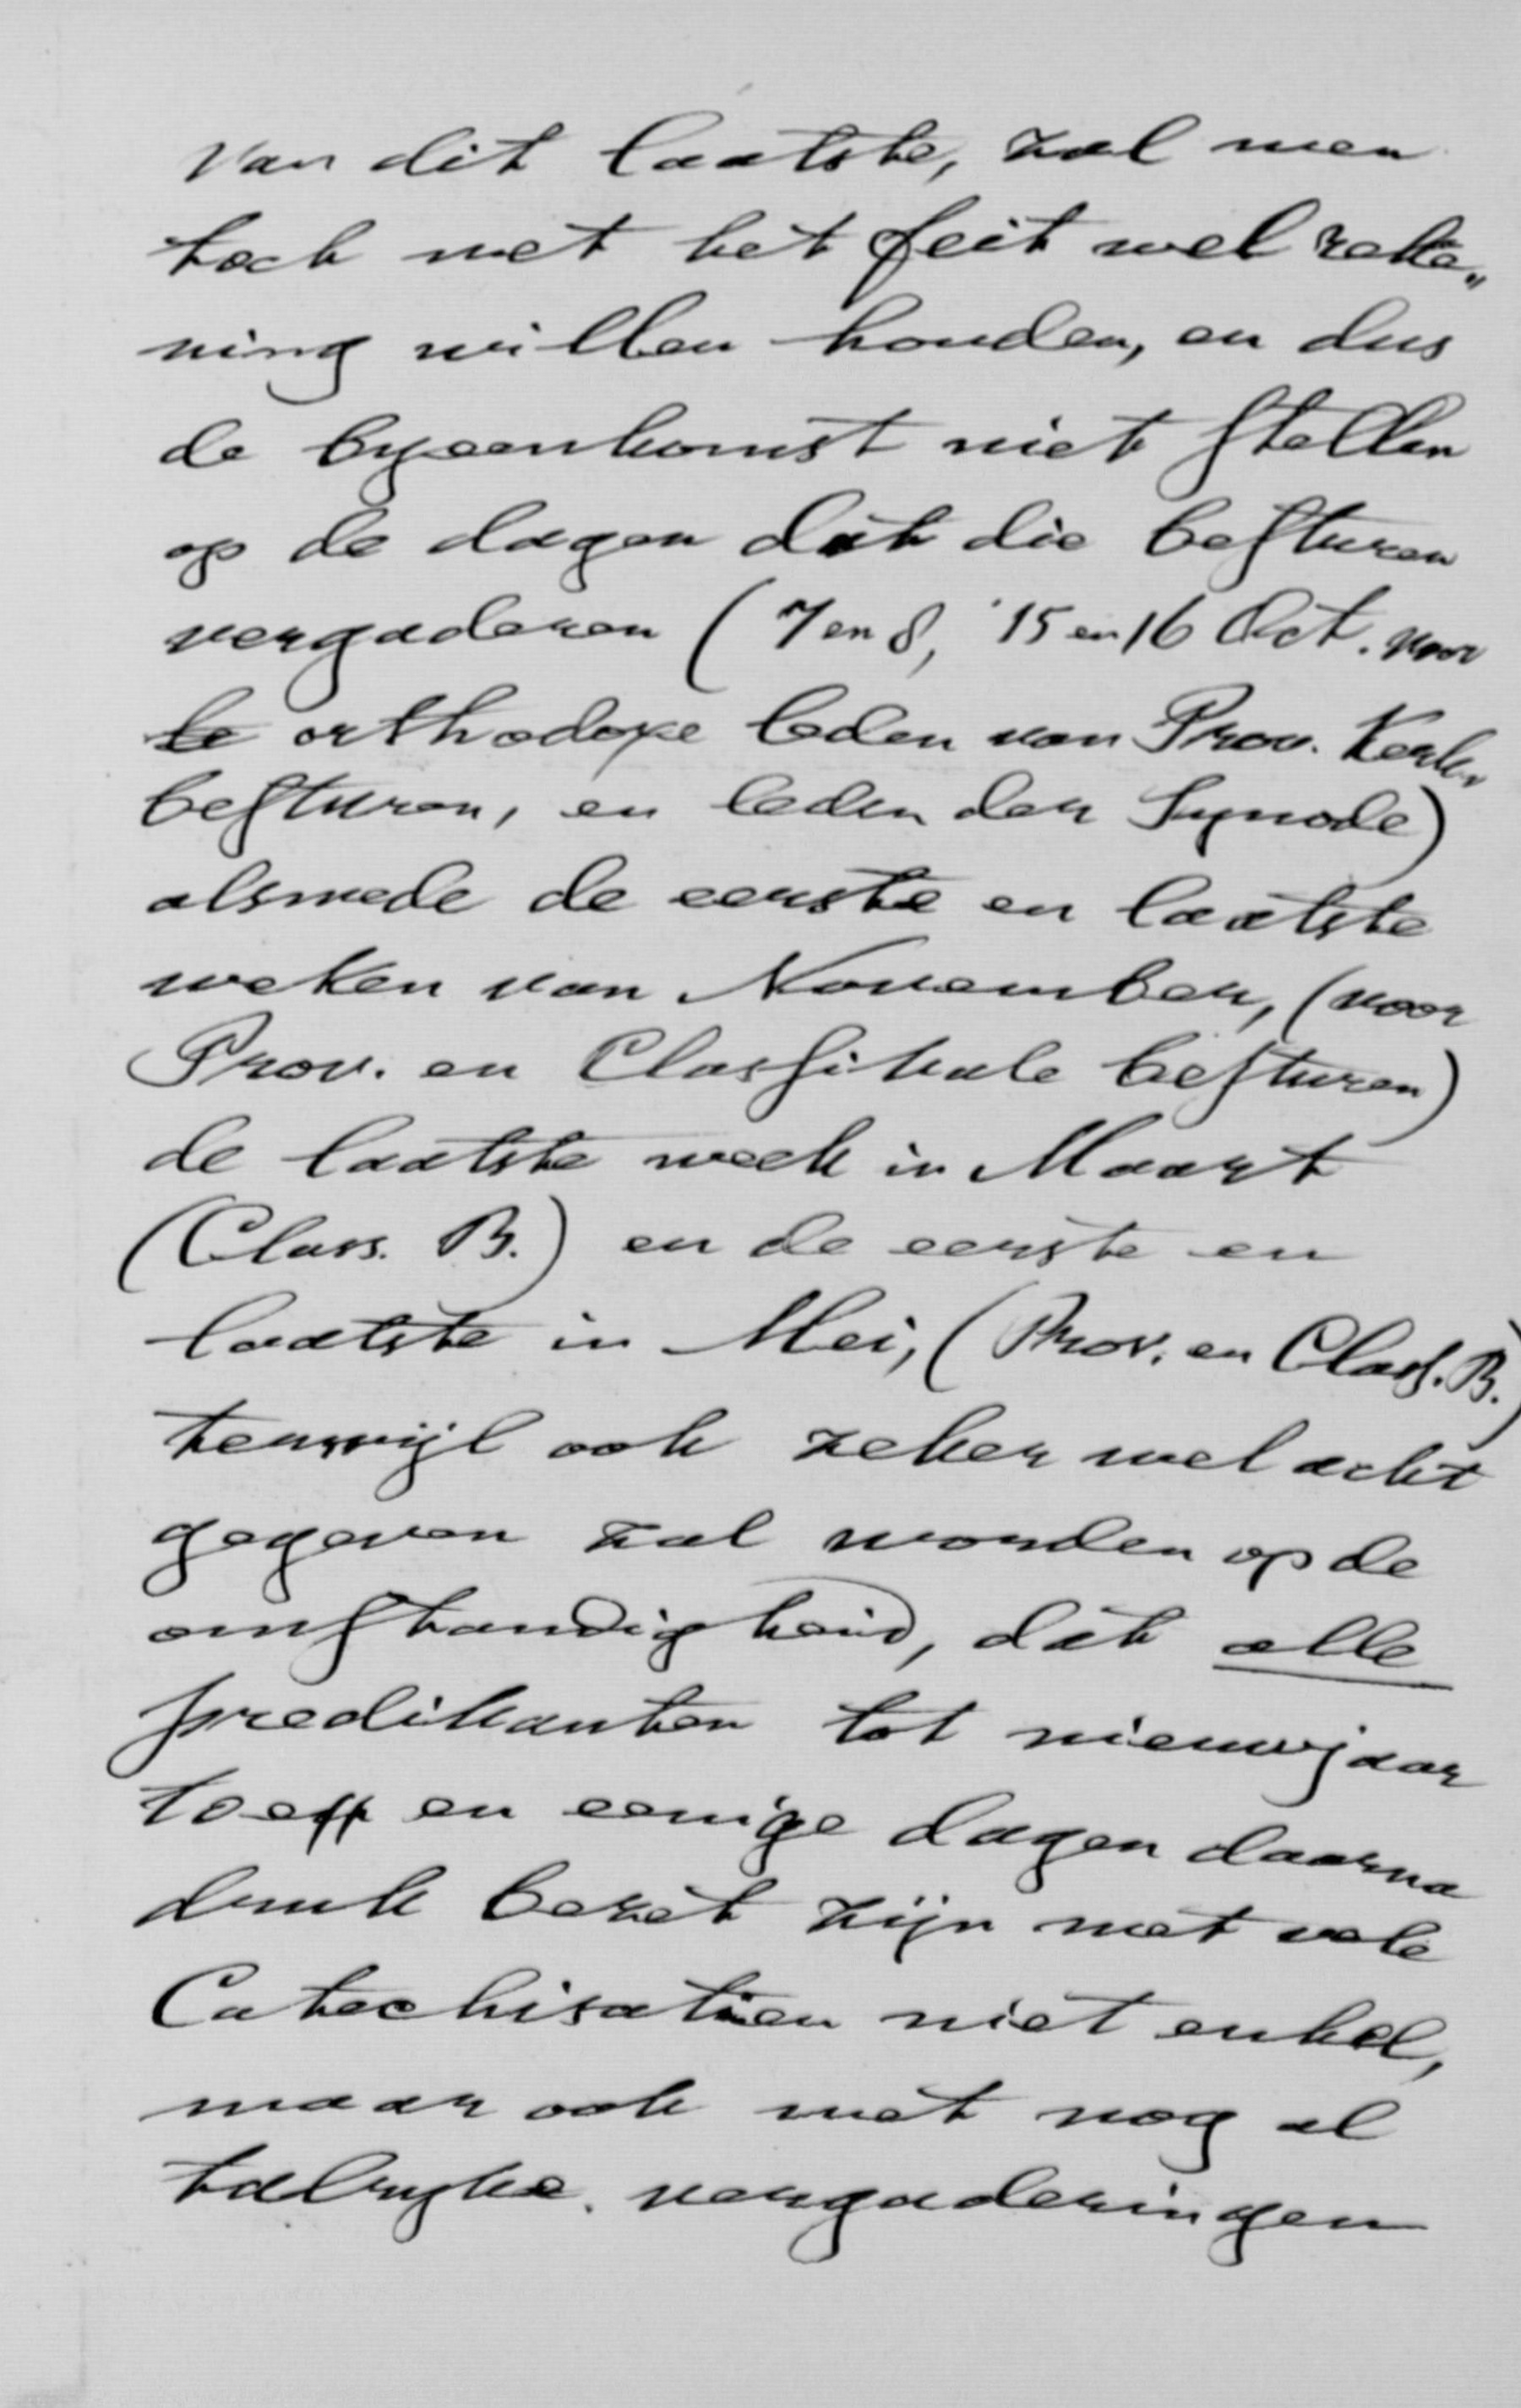 van dit laatste, zal men
toch met het feit wel reke„
ning willen houden, en dus
de byeenkomst niet stellen
op de dagen dat die besturen
vergaderen (7 en 8, 15 en 16 Oct. voor
de orthodoxe leden van Prov. Kerk„
besturen, en leden der Synode)
alsmede de eerste en laatste
weken van November, (voor
Prov. en Classikale besturen)
de laatste week in Maart
(Class. B.) en de eerste en
laatste in Mei, (Prov. en Class. B.)
terwijl ook zeker wel acht
gegeven zal worden op de
omstandigheid, dat alle
predikanten tot nieuwjaar
toe en eenige dagen daarna
druk bezet zijn met vele
Catechisatien niet enkel,
maar ook met nog al
talryke vergaderingen